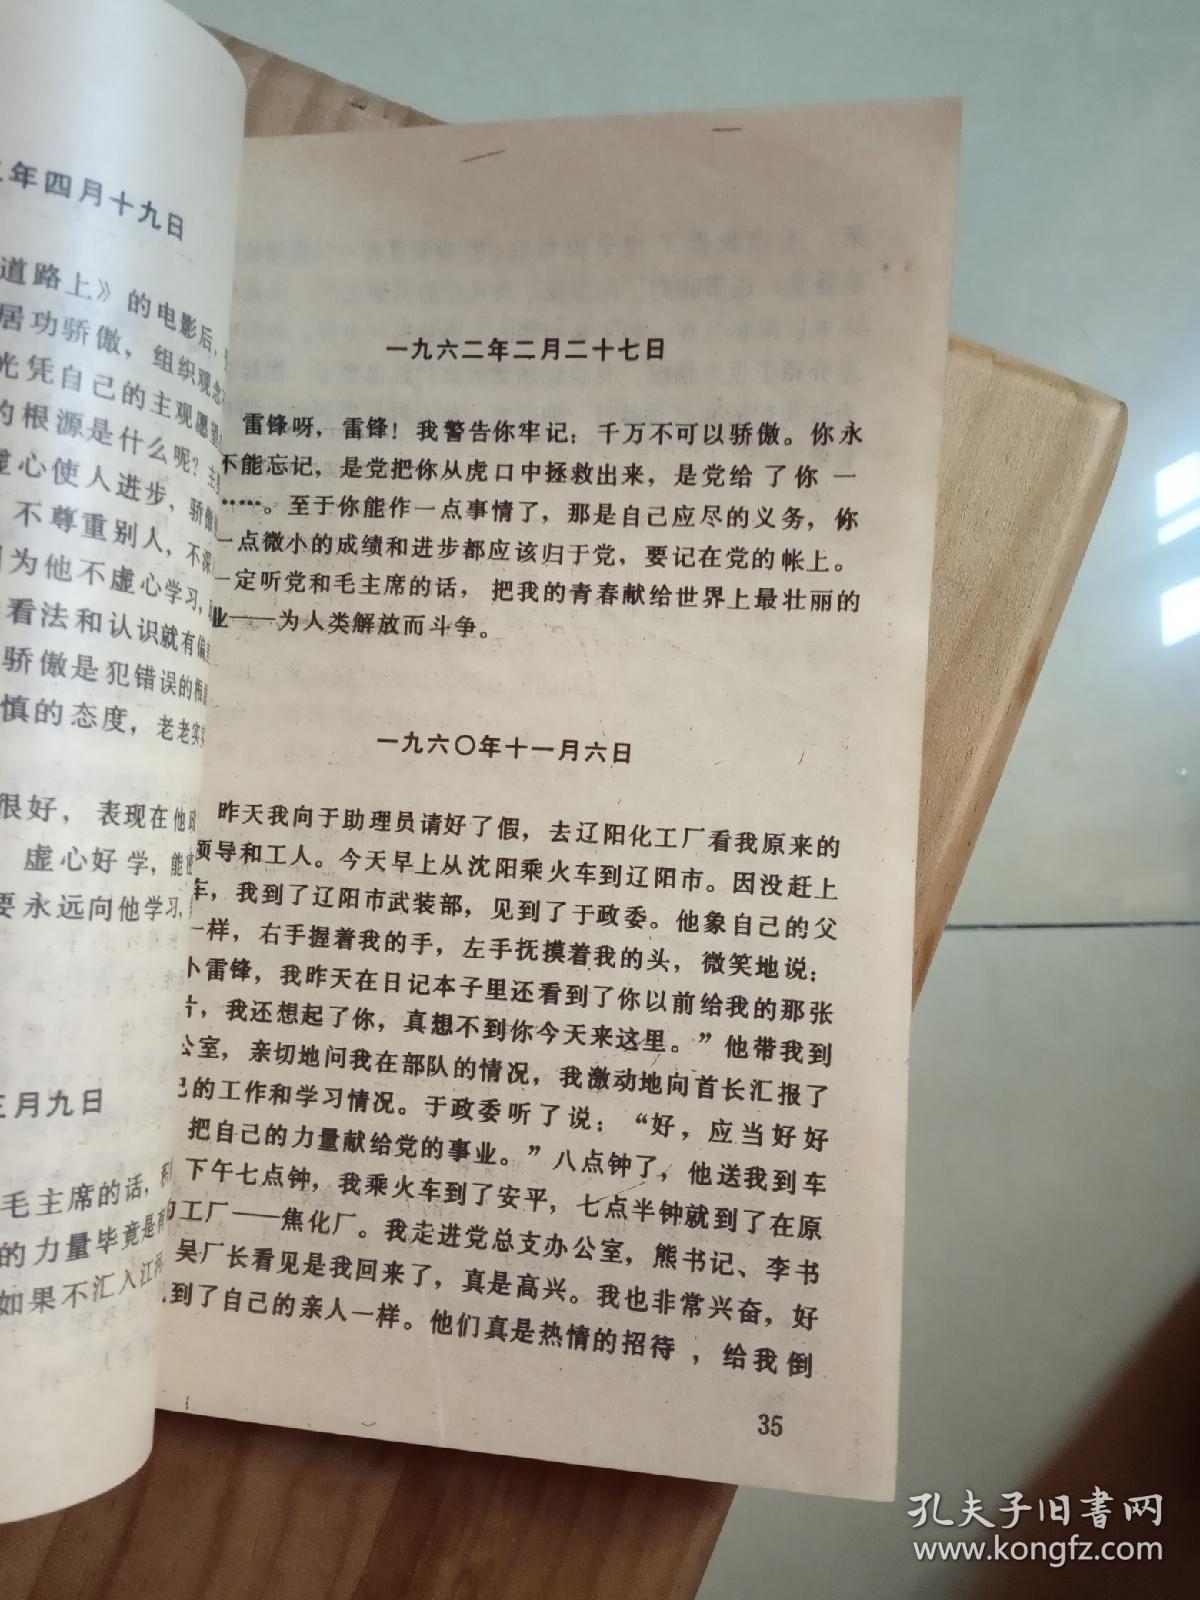 年四月十九日
道路上》的电影后，
居功骄傲，组织观念
光凭自己的主观愿望
的根源是什么呢？主
虚心使人进步，骄傲
不尊重别人，不深
因为他不虚心学习，
看法和认识就有偏
骄傲是犯错误的根
慎的态度，老老实
很好，表现在他政
虚心好学，能密
要永远向他学习，
三月九日
毛主席的话，
的力量毕竟是有
如果不汇入江河
一九六二年二月二十七日
雷锋呀，雷锋！我警告你牢记：千万不可以骄傲。你永
不能忘记，是党把你从虎口中拯救出来，是党给了你一
……。至于你能作一点事情了，那是自己应尽的义务，你
一点微小的成绩和进步都应该归于党，要记在党的帐上。
一定听党和毛主席的话，把我的青春献给世界上最壮丽的
业——为人类解放而斗争。
一九六〇年十一月六日
昨天我向于助理员请好了假，去辽阳化工厂看我原来的
领导和工人。今天早上从沈阳乘火车到辽阳市。因没赶上
车，我到了辽阳市武装部，见到了于政委。他象自己的父
一样，右手握着我的手，左手抚摸着我的头，微笑地说：
小雷锋，我昨天在日记本子里还看到了你以前给我的那张
片，我还想起了你，真想不到你今天来这里。”他带我到
公室，亲切地问我在部队的情况，我激动地向首长汇报了
己的工作和学习情况。于政委听了说：“好，应当好好
把自己的力量献给党的事业。”八点钟了，他送我到车
下午七点钟，我乘火车到了安平，七点半钟就到了在原
工厂——焦化厂。我走进党总支办公室，熊书记、李书
吴厂长看见是我回来了，真是高兴。我也非常兴奋，好
到了自己的亲人一样。他们真是热情的招待，给我倒
35
孔夫子旧书网
www.kongfz.com